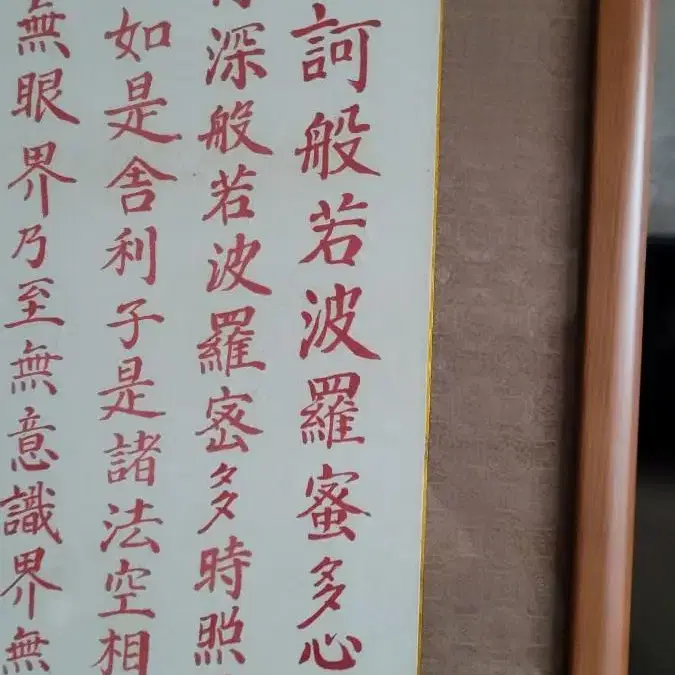 訶般若波羅蜜多心
深般若波羅密多時照
如是舎利子是諸法空相
無眼界乃至無意識界無